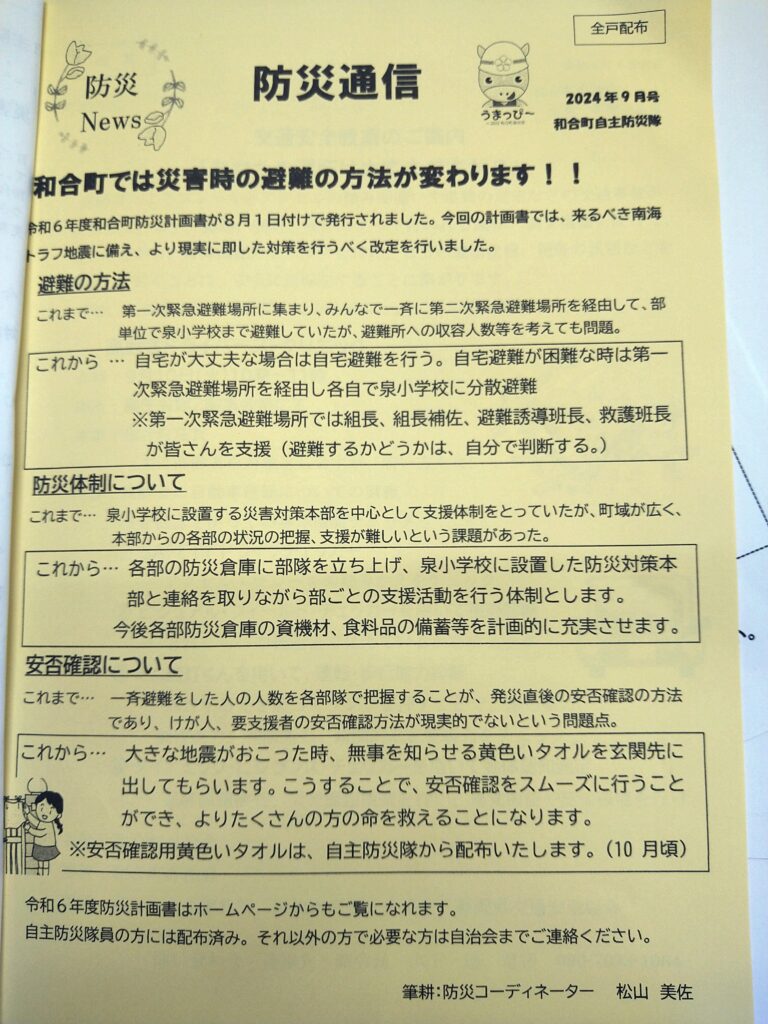 全戸配布
防災
News
防災通信
うまっぴ～
2024年9月号
和合町自主防災隊
和合町では災害時の避難の方法が変わります！！
令和６年度和合町防災計画書が８月１日付けで発行されました。今回の計画書では、来るべき南海
トラフ地震に備え、より現実に即した対策を行うべく改定を行いました。
避難の方法
これまで… 第一次緊急避難場所に集まり、みんなで一斉に第二次緊急避難場所を経由して、部
単位で泉小学校まで避難していたが、避難所への収容人数等を考えても問題。
これから … 自宅が大丈夫な場合は自宅避難を行う。自宅避難が困難な時は第一
次緊急避難場所を経由し各自で泉小学校に分散避難
※第一次緊急避難場所では組長、組長補佐、避難誘導班長、救護班長
が皆さんを支援（避難するかどうかは、自分で判断する。）
防災体制について
これまで… 泉小学校に設置する災害対策本部を中心として支援体制をとっていたが、町域が広く、
本部からの各部の状況の把握、支援が難しいという課題があった。
これから… 各部の防災倉庫に部隊を立ち上げ、泉小学校に設置した防災対策本
部と連絡を取りながら部ごとの支援活動を行う体制とします。
今後各部防災倉庫の資機材、食料品の備蓄等を計画的に充実させます。
安否確認について
これまで… 一斉避難をした人の人数を各部隊で把握することが、発災直後の安否確認の方法
であり、けが人、要支援者の安否確認方法が現実的でないという問題点。
これから… 大きな地震がおこった時、無事を知らせる黄色いタオルを玄関先に
出してもらいます。こうすることで、安否確認をスムーズに行うこと
ができ、よりたくさんの方の命を救えることになります。
※安否確認用黄色いタオルは、自主防災隊から配布いたします。（10 月頃）
令和６年度防災計画書はホームページからもご覧になれます。
自主防災隊員の方には配布済み。それ以外の方で必要な方は自治会までご連絡ください。
筆耕：防災コーディネーター 松山 美佐